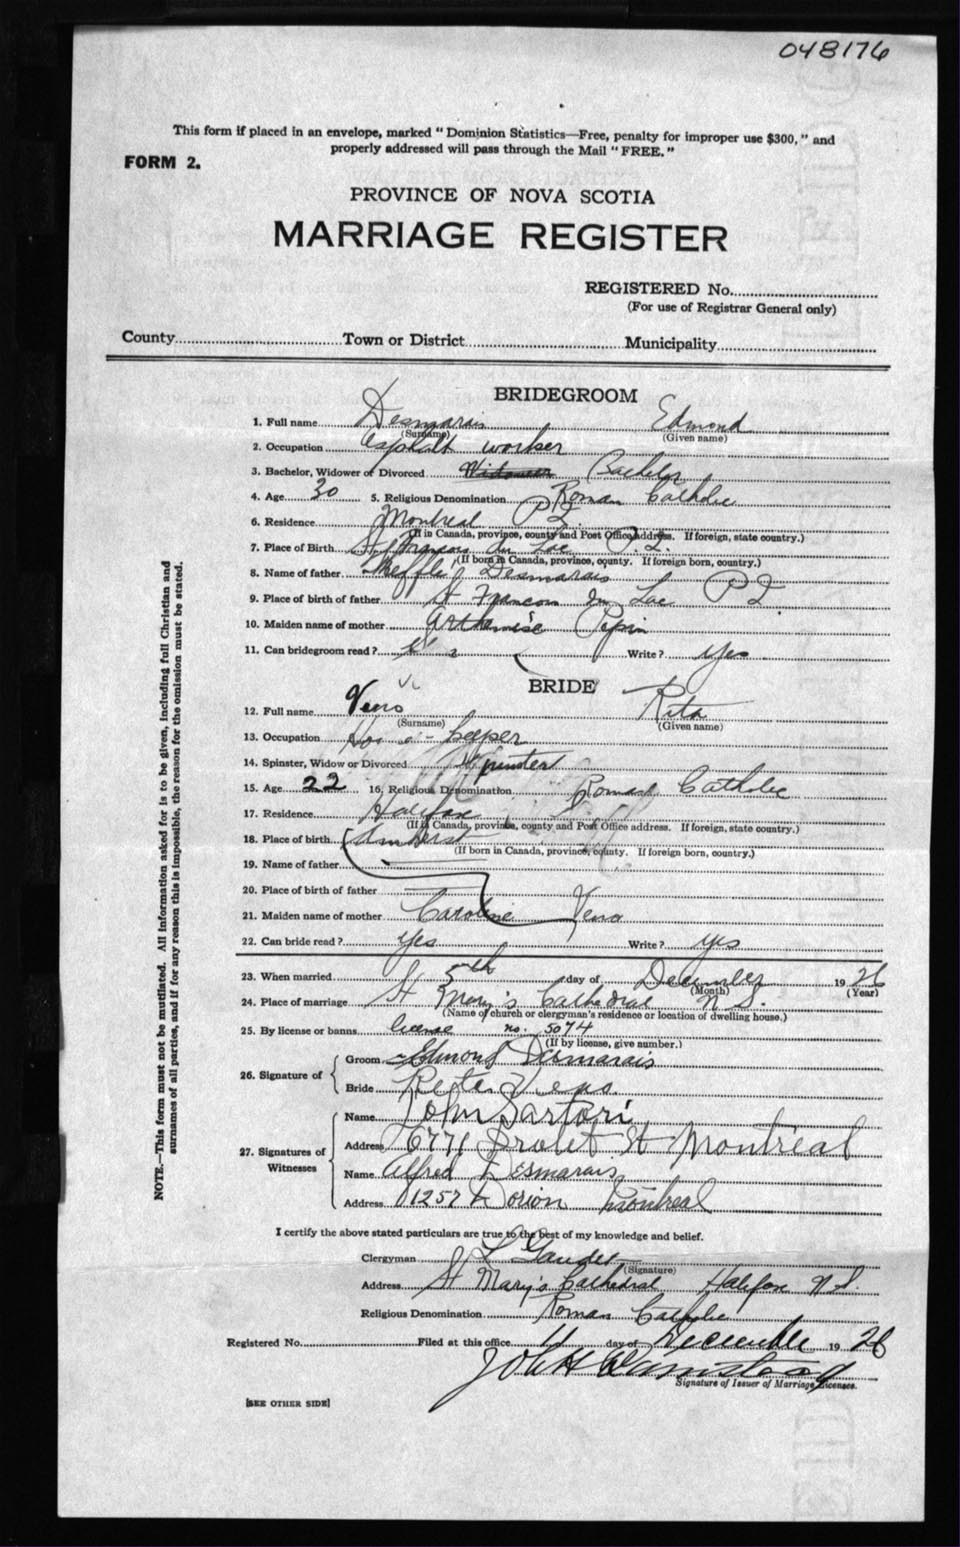 048176
This form if placed in an envelope, marked " Dominion Statistics—Free, penalty for improper use $300, " and
properly addressed will pass through the Mail " FREE. "
FORM 2.
PROVINCE OF NOVA SCOTIA
MARRIAGE REGISTER
REGISTERED No.
(For use of Registrar General only)
County Town or District Municipality
BRIDEGROOM
1. Full name Desmarais Edmond
(Surname) (Given name)
2. Occupation asphalt worker
3. Bachelor, Widower or Divorced Widower Bachelor
4. Age 30 5. Religious Denomination Roman Catholic
6. Residence Montreal P Q.
(If in Canada, province, county and Post Office address. If foreign, state country.)
7. Place of Birth St Francois Du Lac P. Q.
(If born in Canada, province, county. If foreign born, country.)
8. Name of father Desmarais
9. Place of birth of father St Francois Du Lac P Q.
10. Maiden name of mother Arthemise Pepin
11. Can bridegroom read? Yes Write? Yes
BRIDE
12. Full name Veno Rita
(Surname) (Given name)
13. Occupation House-keeper
14. Spinster, Widow or Divorced Spinster
15. Age 22 16. Religious Denomination Roman Catholic
17. Residence Halifax
(If in Canada, province, county and Post Office address. If foreign, state country.)
18. Place of birth Amherst
(If born in Canada, province, county. If foreign born, country.)
19. Name of father
20. Place of birth of father
21. Maiden name of mother Caroline Veno
22. Can bride read? Yes Write? Yes
23. When married 5th day of December 1926
(Month) (Year)
24. Place of marriage St Mary's Cathedral N S.
(Name of church or clergyman's residence or location of dwelling house.)
25. By license or banns license no. 5074
(If by license, give number.)
26. Signature of
Groom Edmond Desmarais
Bride Rita Veno
27. Signatures of Witnesses
Name John Sartori
Address 6771 Drolet St Montréal
Name Alfred Desmarais
Address 1257 Dorion Montreal
I certify the above stated particulars are true to the best of my knowledge and belief.
Clergyman L Gaudet
(Signature)
Address St Mary's Cathedral Halifax N S.
Religious Denomination Roman Catholic
Registered No. Filed at this office 11 day of December 1926
Signature of Issuer of Marriage Licenses.
[SEE OTHER SIDE]
NOTE.—This form must not be mutilated. All information asked for is to be given, including full Christian and
surnames of all parties, and if for any reason this is impossible, the reason for the omission must be stated.